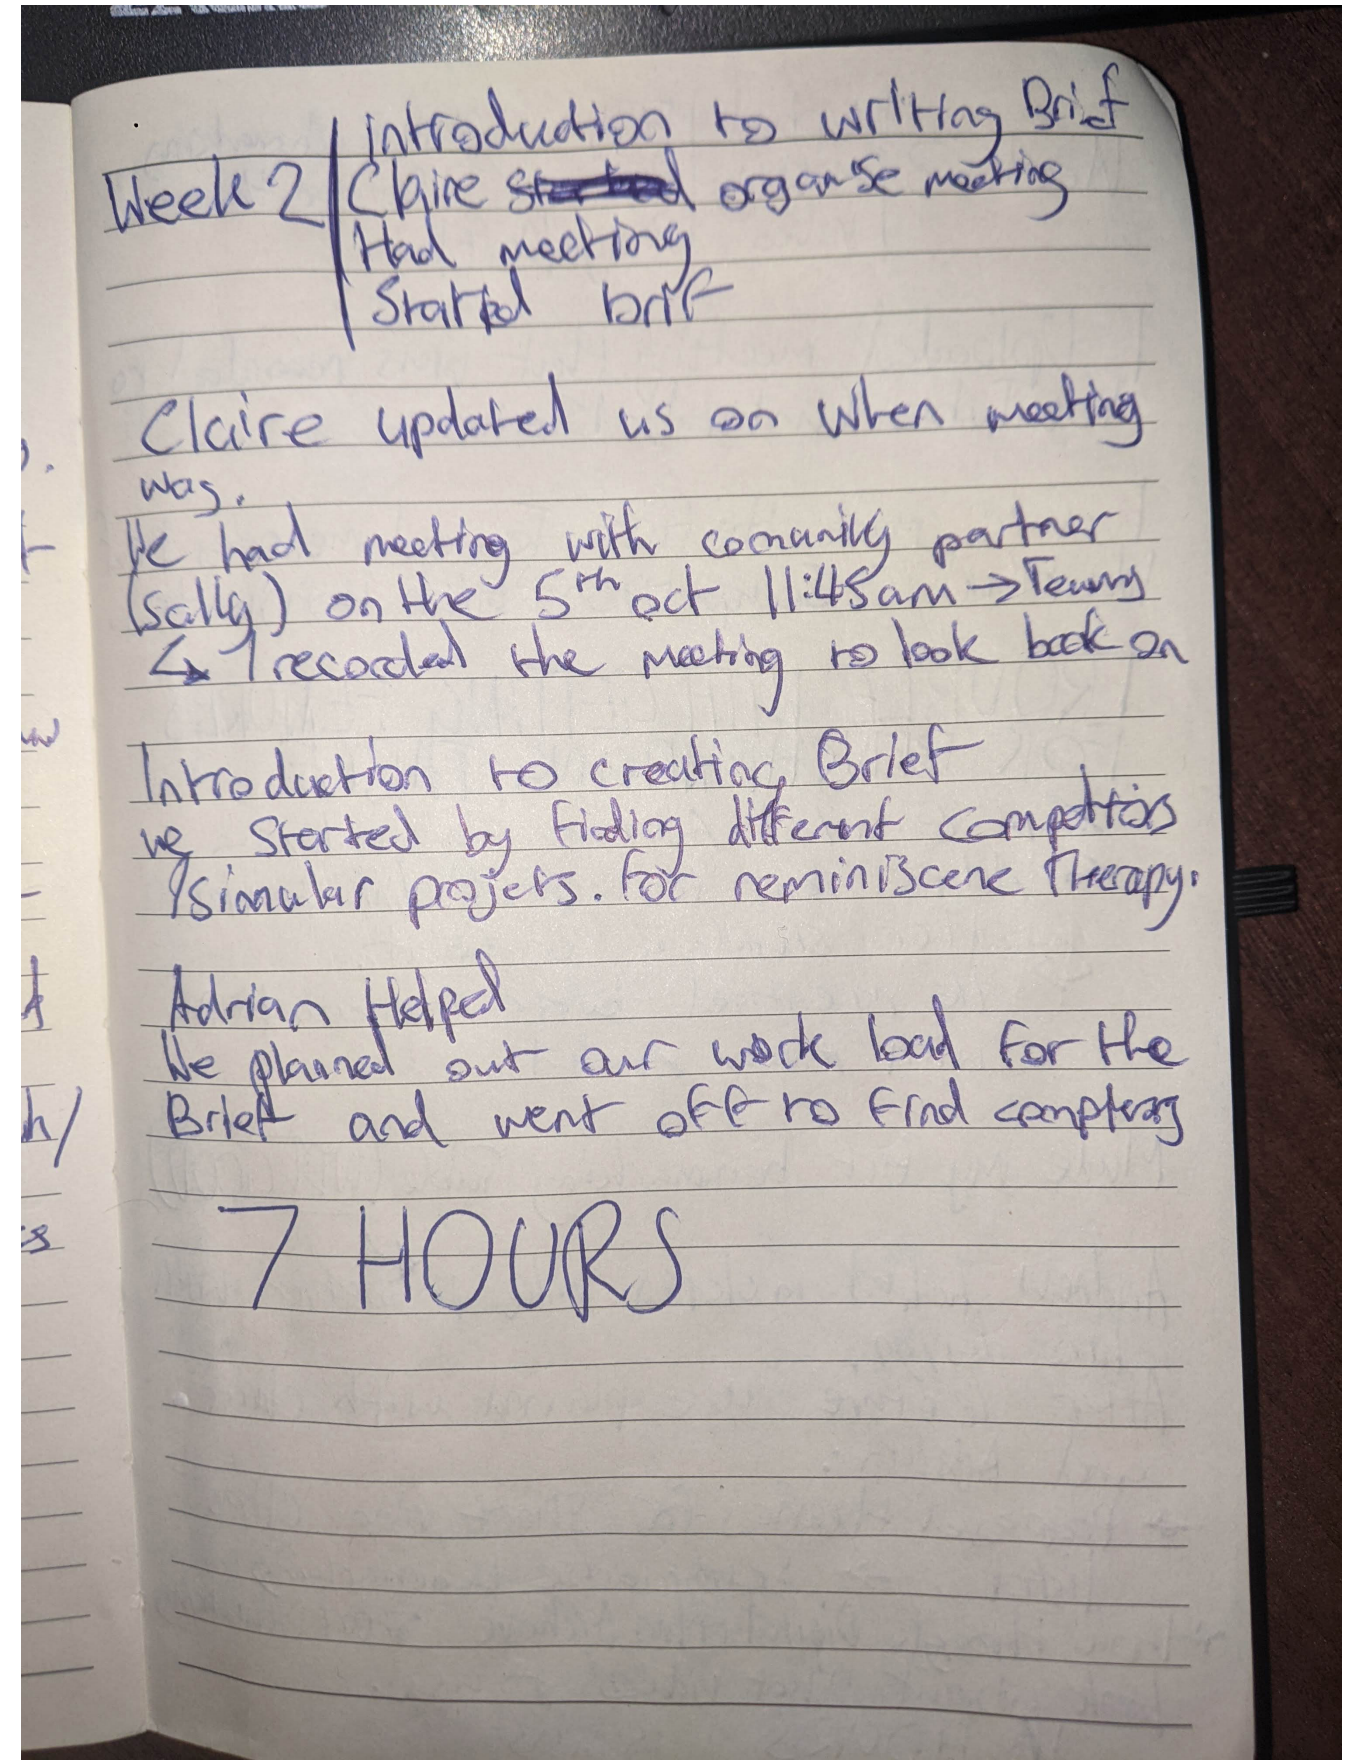 introduction to writing Brief
Week 2 Claire organise meeting
Had meeting
Started brif
Claire updated us on when meeting
was.
We had meeting with comunity partner
(Sally) on the 5th oct 11:45am → Teams
↳ I recorded the meeting to look back on
Introduction to creating Brief
we started by finding different competitors
/simular projets. for reminiscene Therapy.
Adrian Helped
We planned out our work load for the
Brief and went off to find
7 HOURS